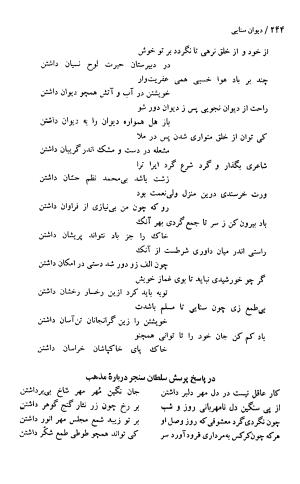 ۲۴۴ / دیوان سنایی
از خود و از خلق نرهی تا نگردد بر تو خوش
در دبیرستان حیرت لوح نسیان داشتن
چند بر باد هوا خسبی همی عفریت‌وار
خویشتن در آب و آتش همچو دیوان داشتن
راحت از دیوان نجویی پس ز دیوان دور شو
باز هل همواره دیوان را به دیوان داشتن
کی توان از خلق متواری شدن پس در ملا
مشعله در دست و مشک اندر گریبان داشتن
شاعری بگذار و گرد شرع گرد ایرا ترا
زشت باشد بی‌محمد نظم حسان داشتن
ورت خرسندی درین منزل ولی‌نعمت بود
رو که چون من بی‌نیازی از فراوان داشتن
باد بیرون کن ز سر تا جمع گردی بهر آنک
خاک را جز باد نتواند پریشان داشتن
راستی اندر میان داوری شرطست از آنک
چون الف زو دور شد دستی در امکان داشتن
گر چو خورشیدی نباید تا بوی غماز خویش
توبه باید کرد ازین رخسار رخشان داشتن
بی‌طمع زی چون سنایی تا مسلم باشدت
خویشتن را زین گرانجانان تن‌آسان داشتن
باد کم کن جان خود را تا توانی همچنو
خاک پای خاکپاشان خراسان داشتن
در پاسخ پرسش سلطان سنجر دربارهٔ مذهب
کار عاقل نیست در دل مهر دلبر داشتن جان نگین مهر مهر شاخ بی‌بر داشتن
از پی سنگین دل نامهربانی روز و شب بر رخ چون زر نثار گنج گوهر داشتن
چون نگردی گرد معشوقی که روز وصل او بر تو زیبد شمع مجلس مهر انور داشتن
هر که چون کرکس به مرداری فرود آورد سر کی تواند همچو طوطی طمع شکّر داشتن